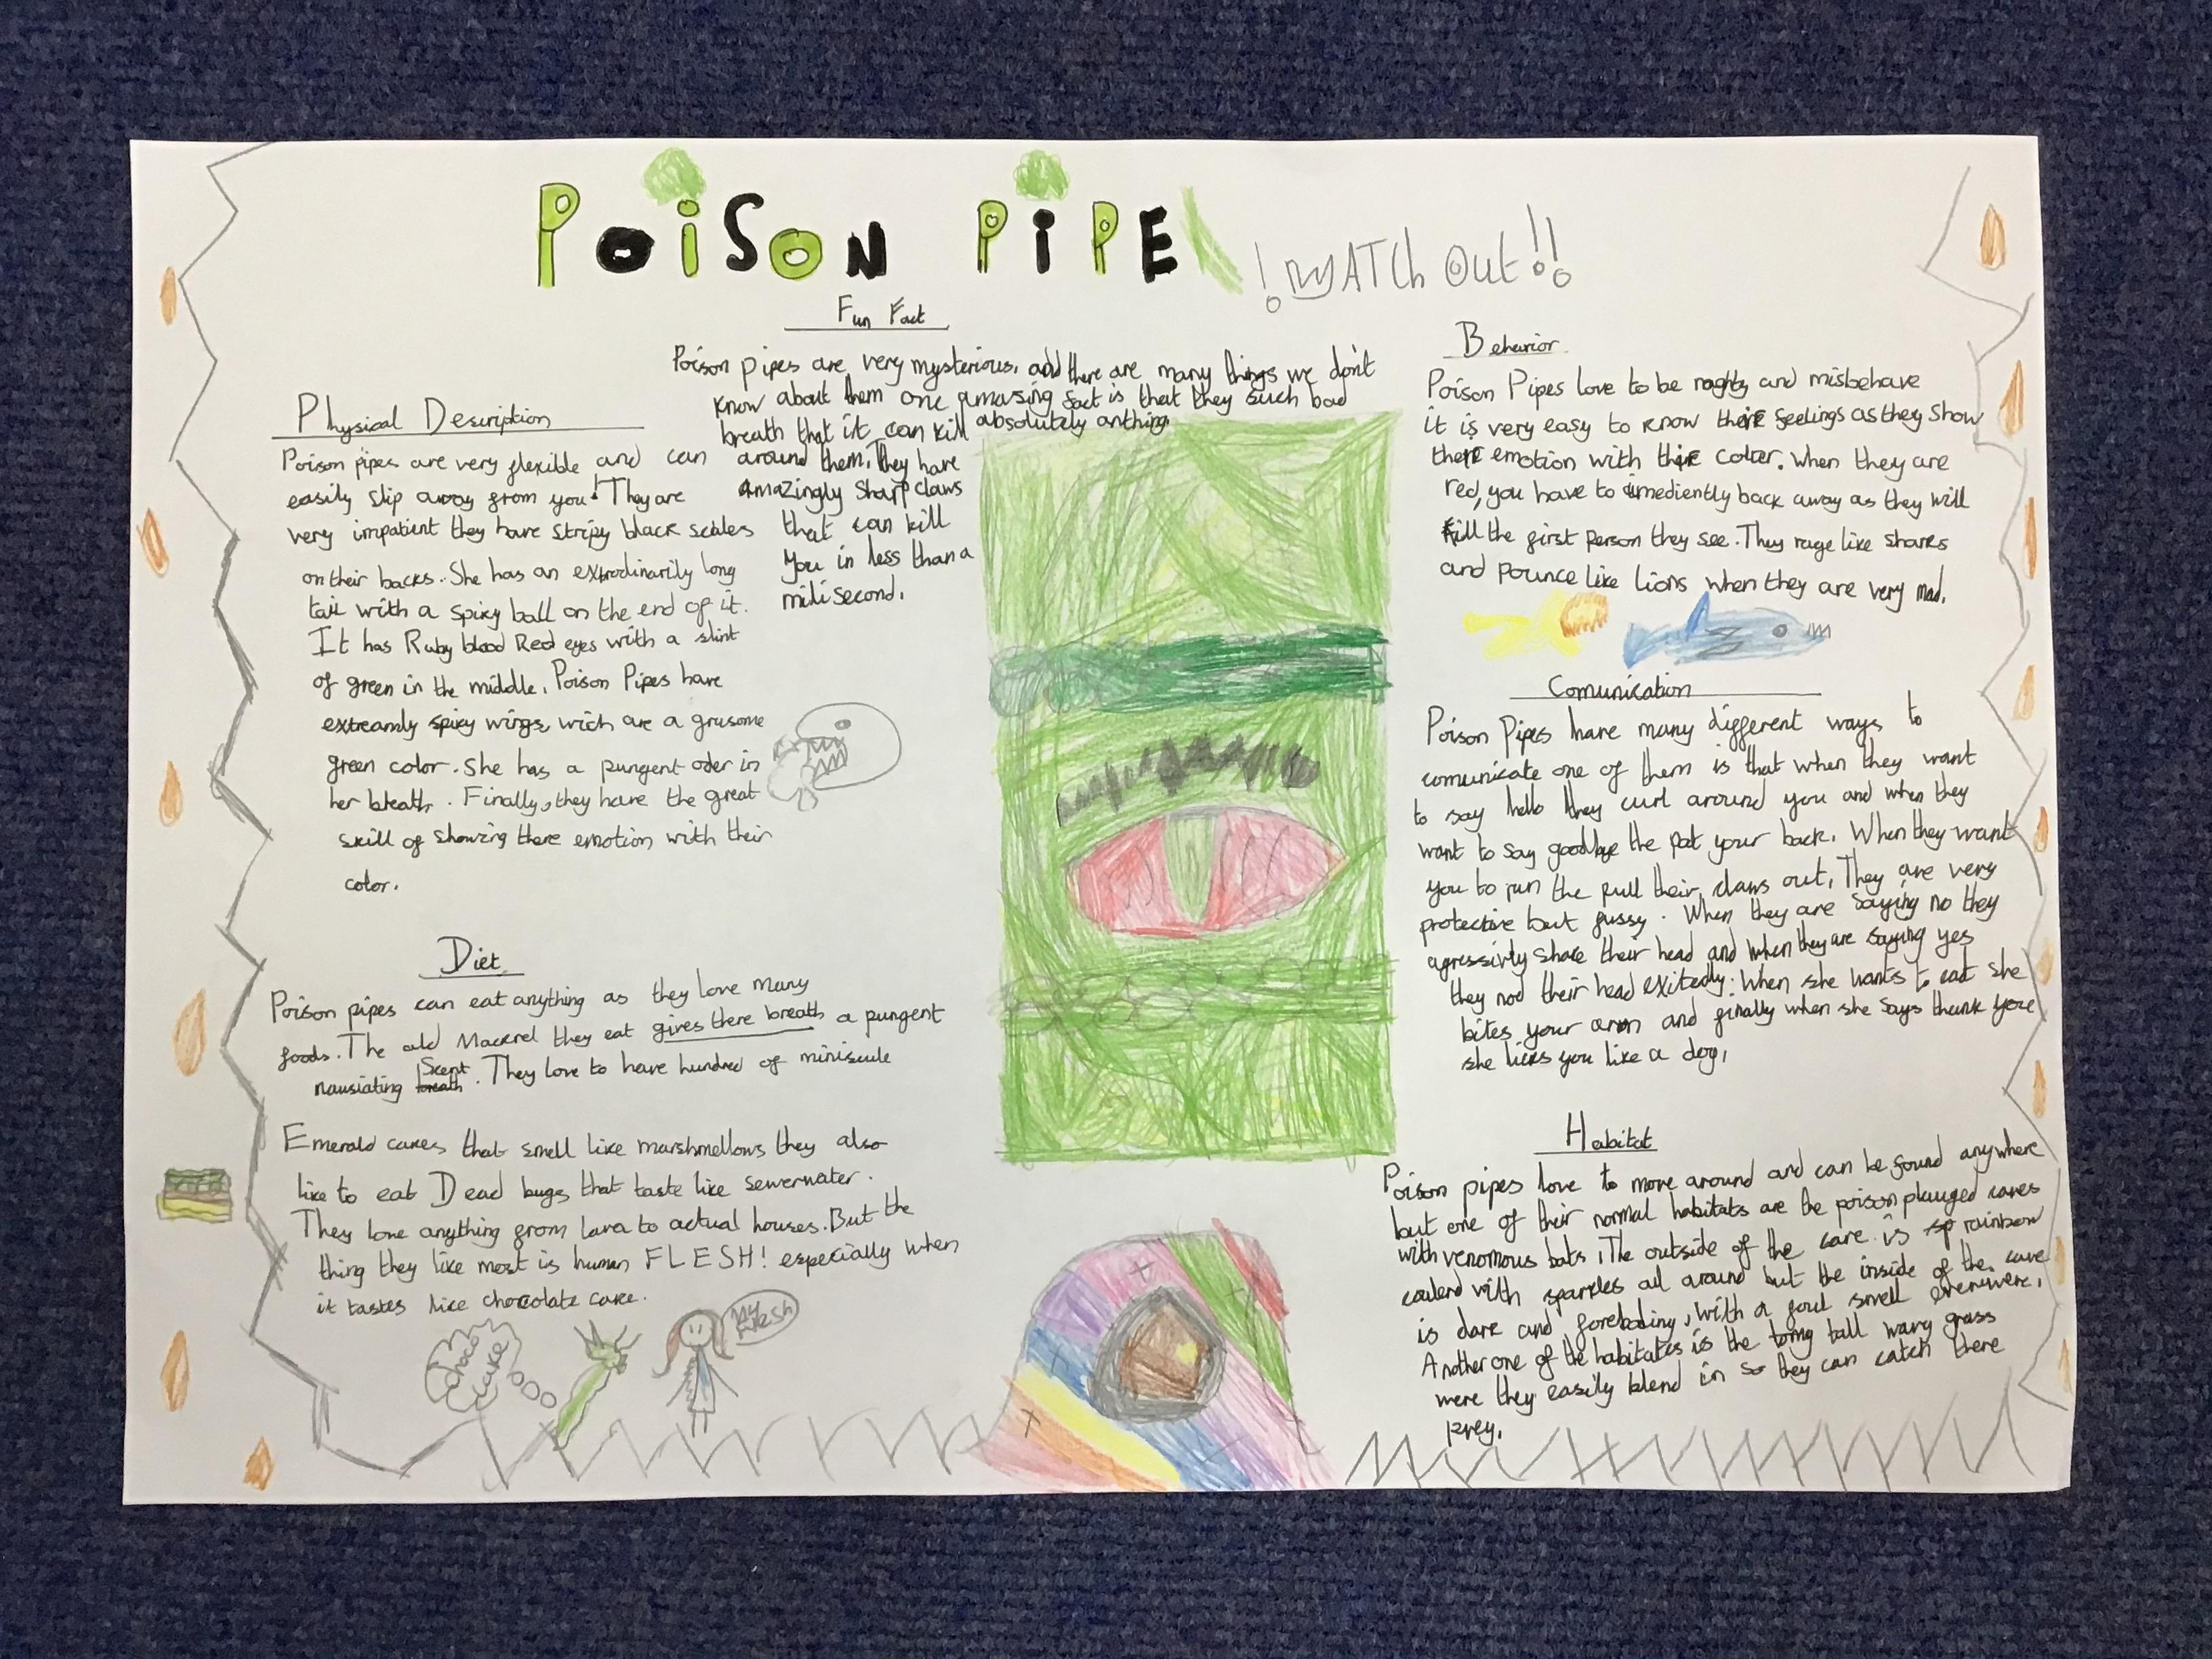 POiSON PiPE
! WATCh Out!!
Fun Fact
Poison pipes are very mysterious, and there are many things we don't
know about them one amazing fact is that they such bad
breath that it can kill absolutely anthing
around them. They have
amazingly sharp claws
that can kill
you in less than a
mili second.
Physical Description
Poison pipes are very flexible and can
easily slip away from you! They are
very impatient they have stripy black scales
on their backs. She has an extrodinarily long
tail with a spiky ball on the end of it.
It has Ruby blood Red eyes with a slint
of green in the middle. Poison Pipes have
extreamly spiky wings, wich are a grusome
green color. She has a pungent oder in
her breath. Finally, they have the great
skill of showing there emotion with their
color.
Diet
Poison pipes can eat anything as they love many
foods. The old Mackrel they eat gives there breath a pungent
nausiating breath Scent. They love to have hundred of miniscule
Emerald cakes that smell like marshmellows they also
like to eat Dead bugs that taste like sewerwater.
They love anything from lava to actual houses. But the
thing they like most is human FLESH! especially when
it tastes like chocolate cake.
Choco
cake
My
Flesh
Behavior
Poison Pipes love to be naghty and misbehave
it is very easy to know their feelings as they show
their emotion with thir color. When they are
red, you have to imediently back away as they will
kill the first person they see. They rage like sharks
and pounce like lions when they are very mad.
Comunication
Poison Pipes have many different ways to
comunicate one of them is that when they want
to say hello they curl around you and when they
want to say goodbye the pat your back. When they want
you to run the pull their claws out. They are very
protective but fussy. When they are saying no they
agressivly shake their head and when they are saying yes
they nod their head exitedly. When she wants to eat she
bites your arm and finally when she says thank you
she licks you like a dog.
Habitat
Poison pipes love to move around and can be found anywhere
but one of their normal habitats are the poison plauged caves
with venomous bats. The outside of the cave is sp rainbow
coulerd with sparkles all around but the inside of the cave
is dark and foreboding, with a foul smell everuwere.
Another one of the habitates is the tall wavy grass
were they easily blend in so they can catch there
prey.